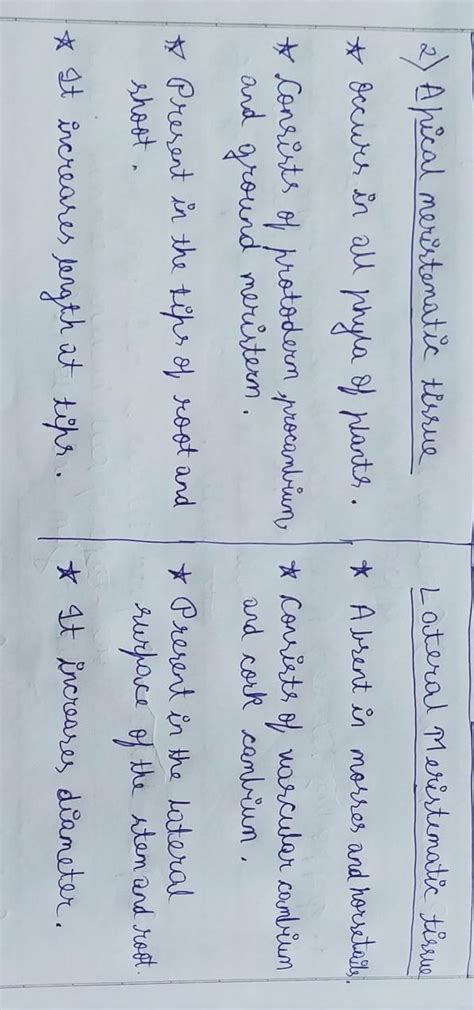 2) Apical meristematic tissue
★ occurs in all phyla of plants.
★ Consists of protoderm, procambium,
and ground meristem.
★ Present in the tips of root and
shoot.
★ It increases length at tips.
Lateral Meristematic tissue
★ Absent in mosses and horsetails.
★ Consists of vascular cambium
and cork cambium.
★ Present in the lateral
surface of the stem and root.
★ It increases diameter.